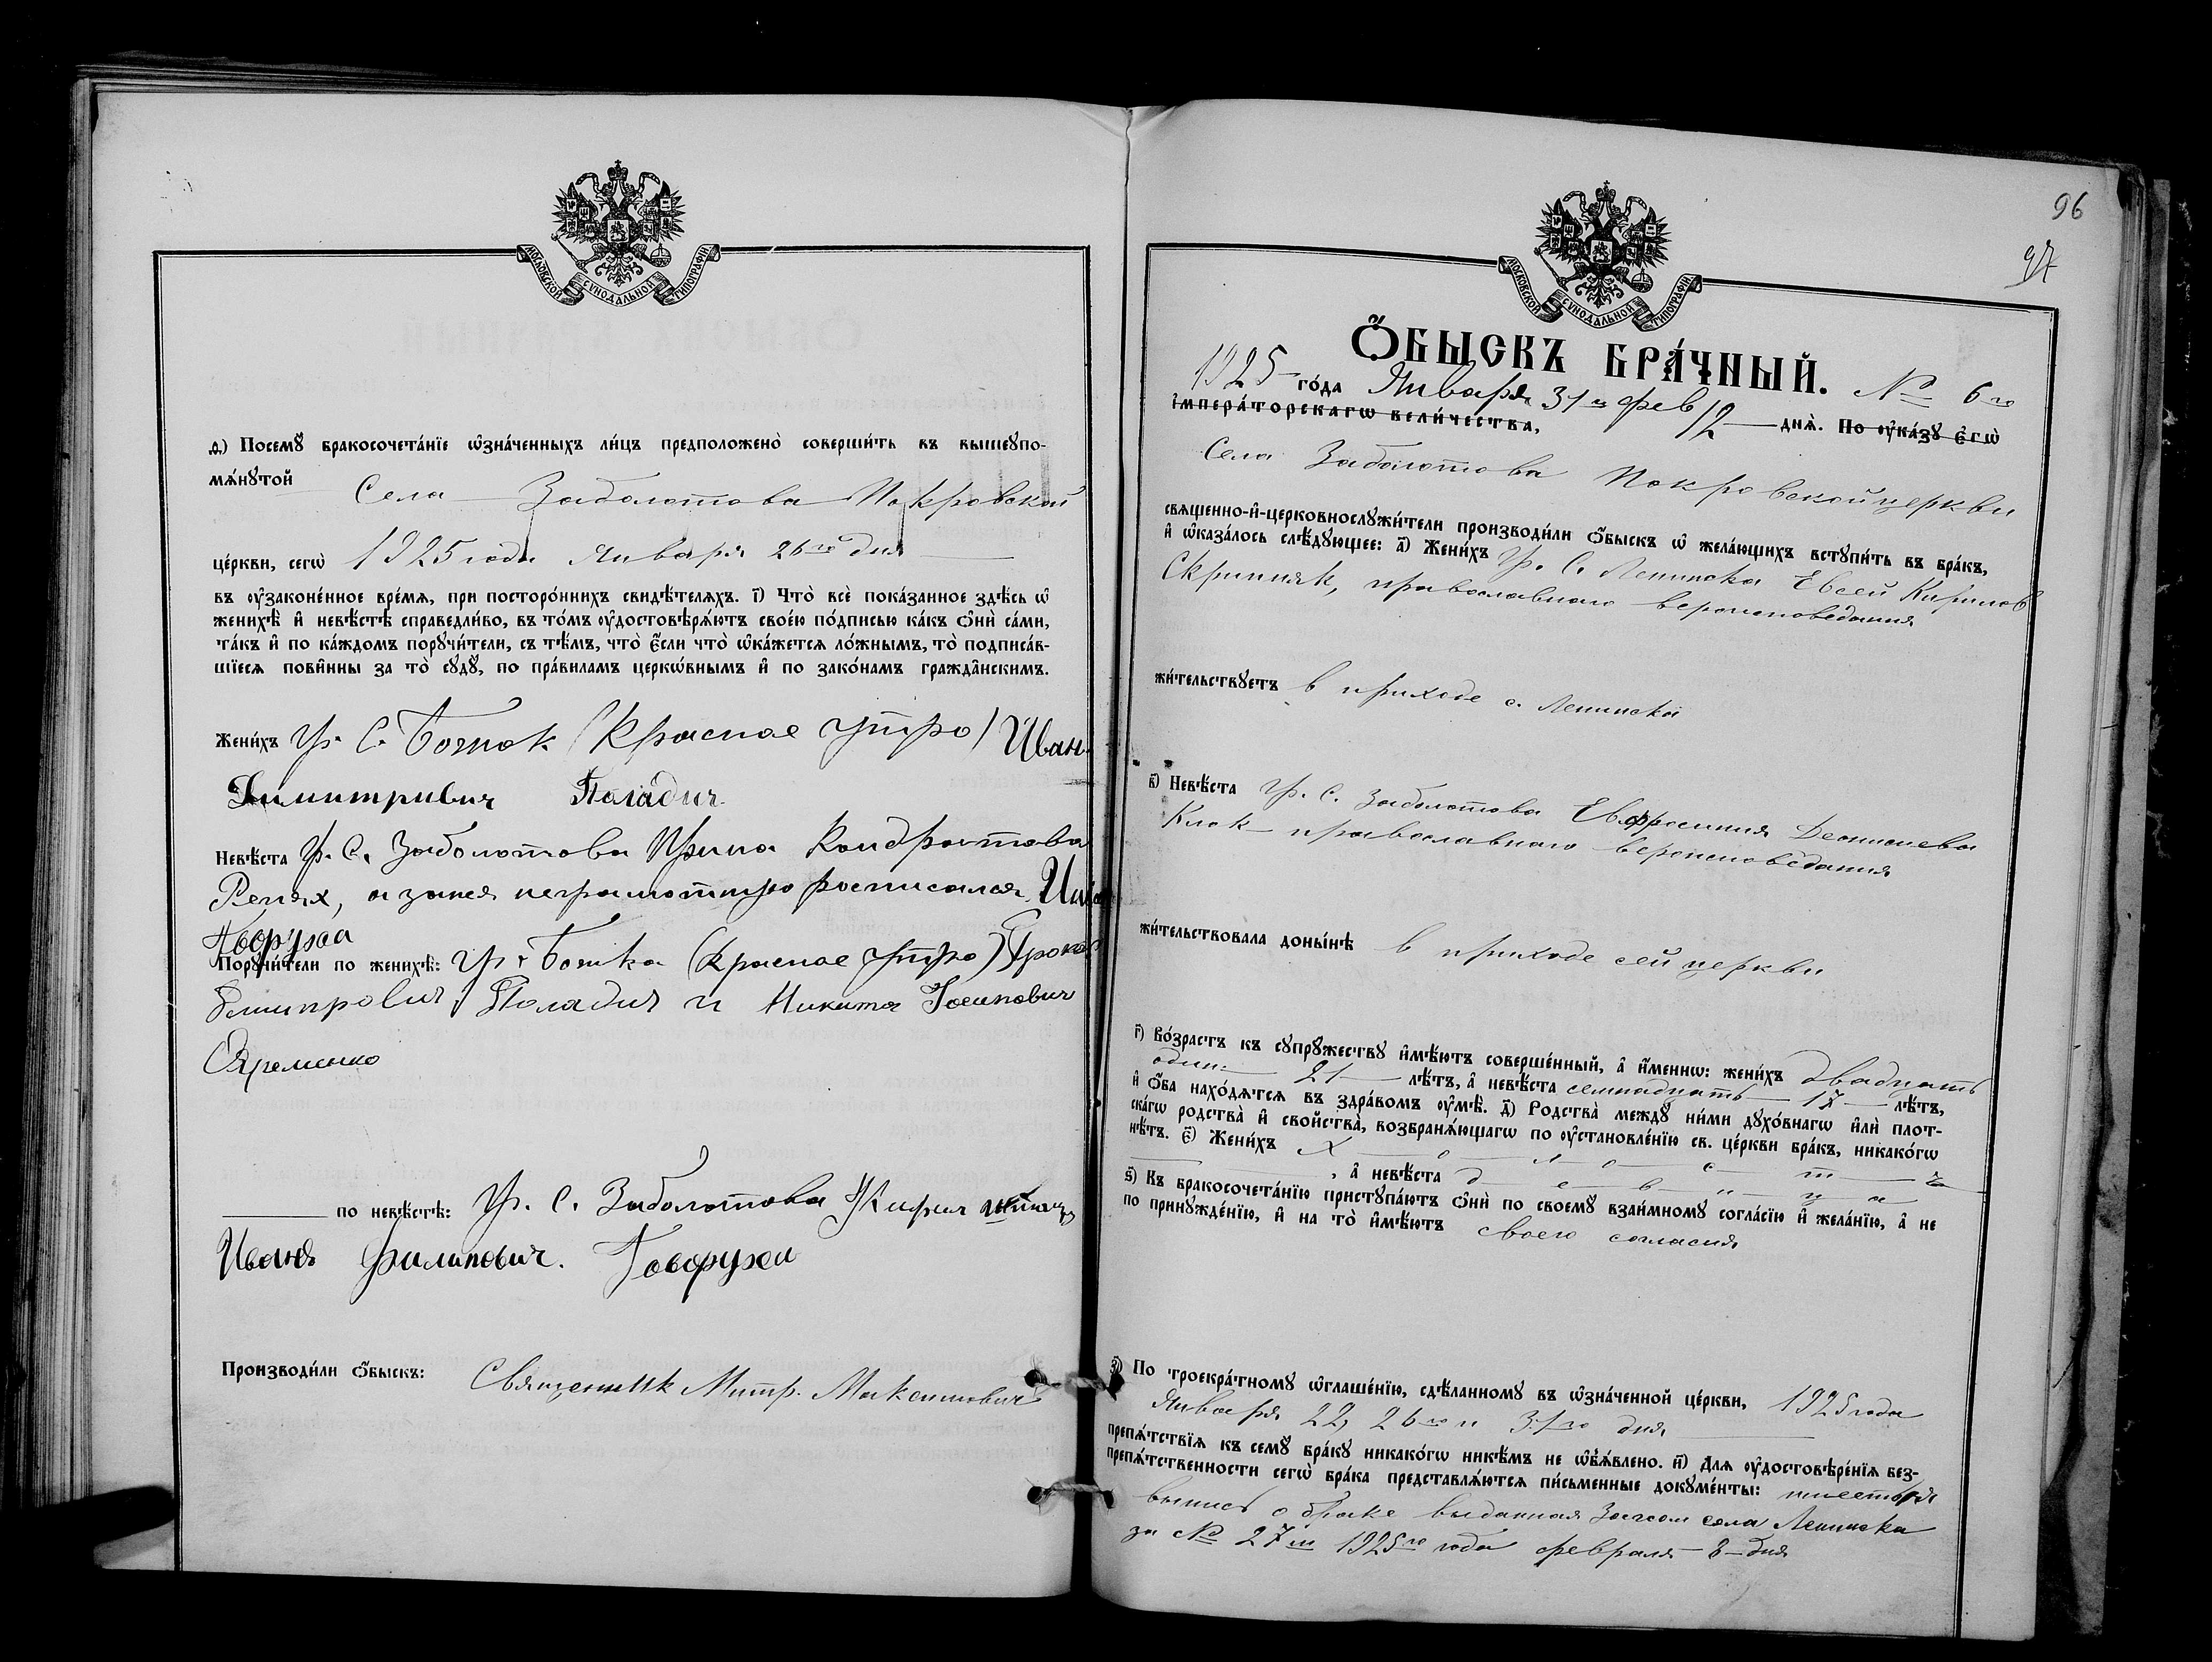 МОСКОВСКОЙ СѴНОДАЛЬНОЙ ТИПОГРАФІИ
д҃) Посемꙋ̀ бракосочета́нїе ѡ҆зна́ченныхъ ли́цъ предположено̀ соверши́ть въ вышеꙋпо-
мѧ́нꙋтой
Села Заболотова Покровской
це́ркви, сегѡ̀ 1925 года Января 26го дня
въ ᲂу҆зако́ненное вре́мѧ, при посторо́ннихъ свидѣ́телѧхъ. і҃) Что̀ всѐ пока́занное здѣ́сь ѡ҆
женихѣ̀ и҆ невѣ́стѣ справедли́во, въ то́мъ ᲂу҆достовѣрѧ́ютъ свое́ю по́дписью ка́къ ѻ҆нѝ са́ми,
та́къ и҆ по ка́ждомъ порꙋчи́тели, съ тѣ́мъ, что̀ є҆́сли что̀ ѡ҆ка́жетсѧ ло́жнымъ, то̀ подписа́в-
шїесѧ пови́нны за то̀ сꙋдꙋ̀, по пра́виламъ церкѡ́внымъ и҆ по зако́намъ гражда́нскимъ.
Жени́хъ Гр. С. Боток (Красное утро) Иван
Димитривич Паладич
Невѣ́ста Гр. С. Заболотова Ирина Кондратова
Репях, а занея неграмотную росписался Иван
Говоруха
Порꙋчи́тели по женихѣ̀: Гр. Ботка (Красное утро) Проко
Демитрович Паладич и Никита Госипович
Яременко
по невѣ́стѣ: Гр. С. Заболотова
Иванъ Филипович. Говоруха
Производи́ли ѻ҆́быскъ: Священник Митр. Максимович
96
97
МОСКОВСКОЙ СѴНОДАЛЬНОЙ ТИПОГРАФІИ
Ѻ҆́БЫСКЪ БРА́ЧНЫЙ.
1925 го́да Января 31 и фев 12 днѧ̀. № 6го По ᲂу҆ка́зꙋ є҆гѡ̀
і҆мпера́торскагѡ вели́чества,
Села Заболотова Покровской церкви
свѧще́нно-и҆-церковнослꙋжи́тели производи́ли ѻ҆́быскъ ѡ҆ жела́ющихъ встꙋпи́ть въ бра́къ,
и҆ ѡ҆каза́лось слѣ́дꙋющее: а҃) Жени́хъ Гр. С. Ленинска Евсей Кирилов
Скрипняк, православного вероисповедания
жи́тельствꙋетъ в приходе с. Ленинска
в҃) Невѣ́ста Гр. С. Заболотова Евфросиния Деонисиева
Клок православного вероисповедания
жи́тельствовала доны́нѣ в приходе сей церкви
г҃) Во́зрастъ къ сꙋпрꙋ́жествꙋ и҆мѣ́ютъ соверше́нный, а҆ и҆́меннѡ: жени́хъ двадцать
один 21 лѣ́тъ, а҆ невѣ́ста семнадцать 17 лѣ́тъ,
и҆ ѻ҆́ба нахо́дѧтсѧ въ здра́вомъ ᲂу҆мѣ̀. д҃) Родства̀ междꙋ̀ ни́ми дꙋхо́внагѡ и҆лѝ плот-
ска́гѡ родства̀ и҆ сво́йства, возбранѧ́ющагѡ по ᲂу҆становле́нїю св. це́ркви бра́къ, никако́гѡ
нѣ́тъ. є҃) Жени́хъ Х о л о с т
, а҆ невѣ́ста д е в и ц а
ѕ҃) Къ бракосочета́нїю пристꙋпа́ютъ ѻ҆нѝ по своемꙋ̀ взаи́мномꙋ согла́сїю и҆ жела́нїю, а҆ не
по принꙋжде́нїю, и҆ на то̀ и҆мѣ́ютъ своего согласия
з҃) По троекра́тномꙋ ѡ҆глаше́нїю, сдѣ́ланномꙋ въ ѡ҆зна́ченной це́ркви, 1925 года
Января 22, 26го и 31го дня
препѧ́тствїѧ къ семꙋ̀ бра́кꙋ никако́гѡ никѣ́мъ не ѡ҆б̾ѧ́влено. и҃) Для ᲂу҆достовѣре́нїѧ без-
препѧ́тственности сегѡ̀ бра́ка представлѧ́ютсѧ пи́сьменные докꙋме́нты: имеется
выпись о браке выданная Загсом села Ленинска
за № 27м 1925го года февраля 8 дня